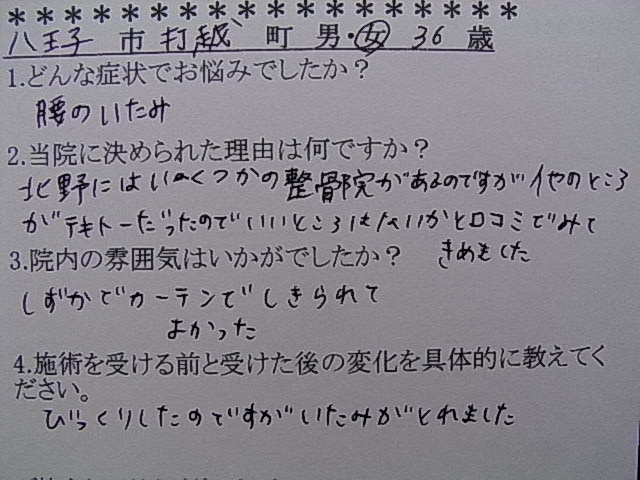 ******************
八王子 市 打越 町 男・女 36 歳
1.どんな症状でお悩みでしたか？
腰のいたみ
2.当院に決められた理由は何ですか？
北野にはいくつかの整骨院があるのですが他のところ
がテキトーだったのでいいところはないかと口コミでみて
きめました
3.院内の雰囲気はいかがでしたか？
しずかでカーテンでしきられて
よかった
4.施術を受ける前と受けた後の変化を具体的に教えてく
ださい。
びっくりしたのですがいたみがとれました